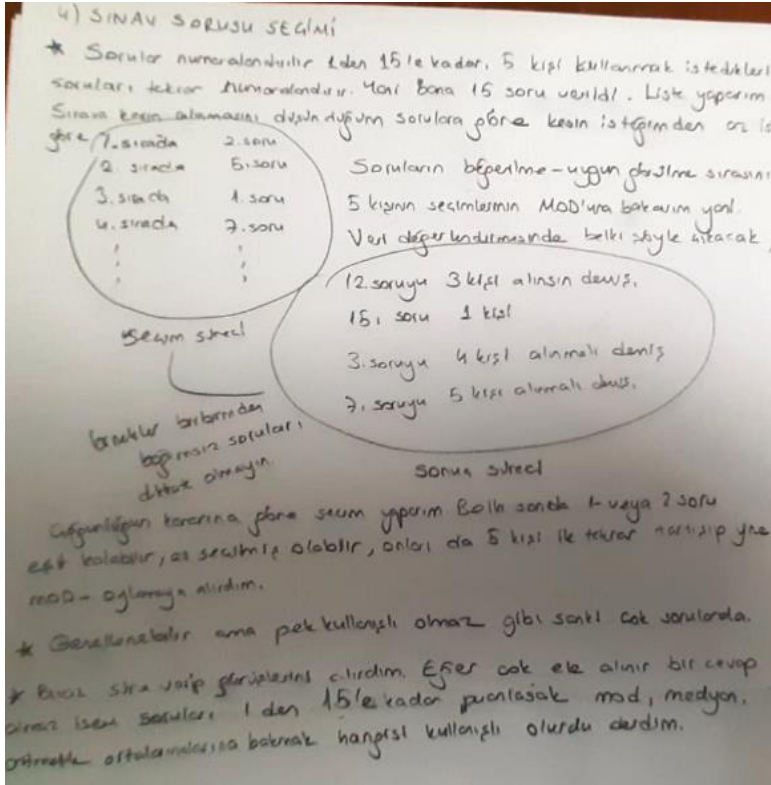 4) SINAV SORUSU SEÇİMİ
* Sorular numaralandırılır 1den 15'e kadar. 5 kişi kullanmak istedikleri
soruları tekrar numaralandırır. Yani Bana 15 soru verildi. Liste yaparım
Sınava kesin alamasını düşündüğüm sorulara göre kesin isteğimden az is
göre 1. sırada 2. soru
2. sırada 5. soru
3. sırada 1. soru
4. sırada 7. soru
Soruların beğenilme-uygun görülme sırasını
5 kişinin seçimlerinin MOD'una bakarım yani.
Veri değerlendirmesinde belki şöyle çıkacak
12. soruyu 3 kişi alınsın demiş.
15. soru 1 kişi
3. soruyu 4 kişi alınmalı demiş
7. soruyu 5 kişi alınmalı demiş.
seçim süreci
örnekler birbirinden
bağımsız soruları
dikkate almayın.
sonuç süreci
Çoğunluğun kararına göre seçim yaparım Belki sonda 1 veya 2 soru
eşit kalabilir, az seçilmiş olabilir, onları da 5 kişi ile tekrar tartışıp yine
mod - oylamaya alırdım.
* Genellenebilir ama pek kullanışlı olmaz gibi sanki çok sorularda.
* Biraz sıra yapıp görüşlerini alırdım. Eğer çok ele alınır bir cevap
alamaz isem soruları 1 den 15'e kadar puanlasak mod, medyan,
aritmetik ortalamalarına bakmak hangisi kullanışlı olurdu derdim.